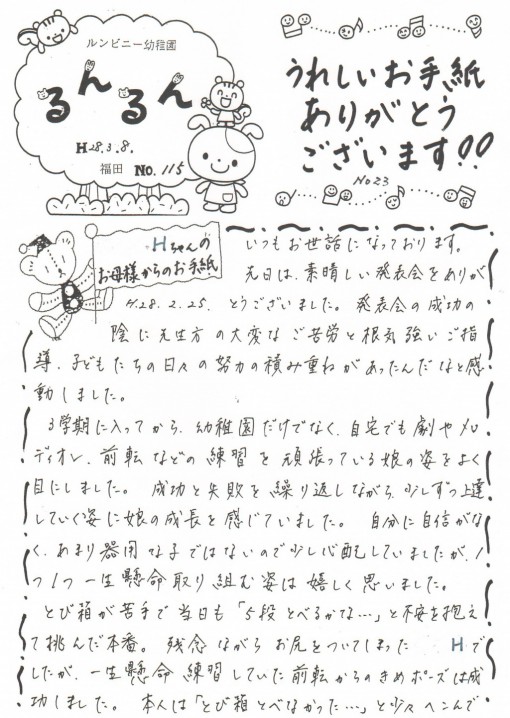 ルンビニー幼稚園
るんるん
H28.3.8.
福田 No.115
うれしいお手紙
ありがとう
ございます!!
No23
Hちゃんの
お母様からのお手紙
H.28.2.25.
いつもお世話になっております。
先日は、素晴しい発表会をありが
とうございました。発表会の成功の
陰に先生方の大変なご苦労と根気強いご指
導、子どもたちの日々の努力の積み重ねがあったんだなと感
動しました。
3学期に入ってから、幼稚園だけでなく、自宅でも劇やメロ
ディオン、前転などの練習を頑張っている娘の姿をよく
目にしました。 成功と失敗を繰り返しながら、少しずつ上達
していく姿に娘の成長を感じていました。 自分に自信がな
く、あまり器用な子ではないので少し心配していましたが、1
つ1つ一生懸命取り組む姿は嬉しく思いました。
とび箱が苦手で当日も「5段とべるかな…」と不安を抱え
て挑んだ本番。 残念ながらお尻をついてしまった Hで
したが、一生懸命練習していた前転からのきめポーズは成
功しました。 本人は「とび箱とべなかった…」と少々へこんで